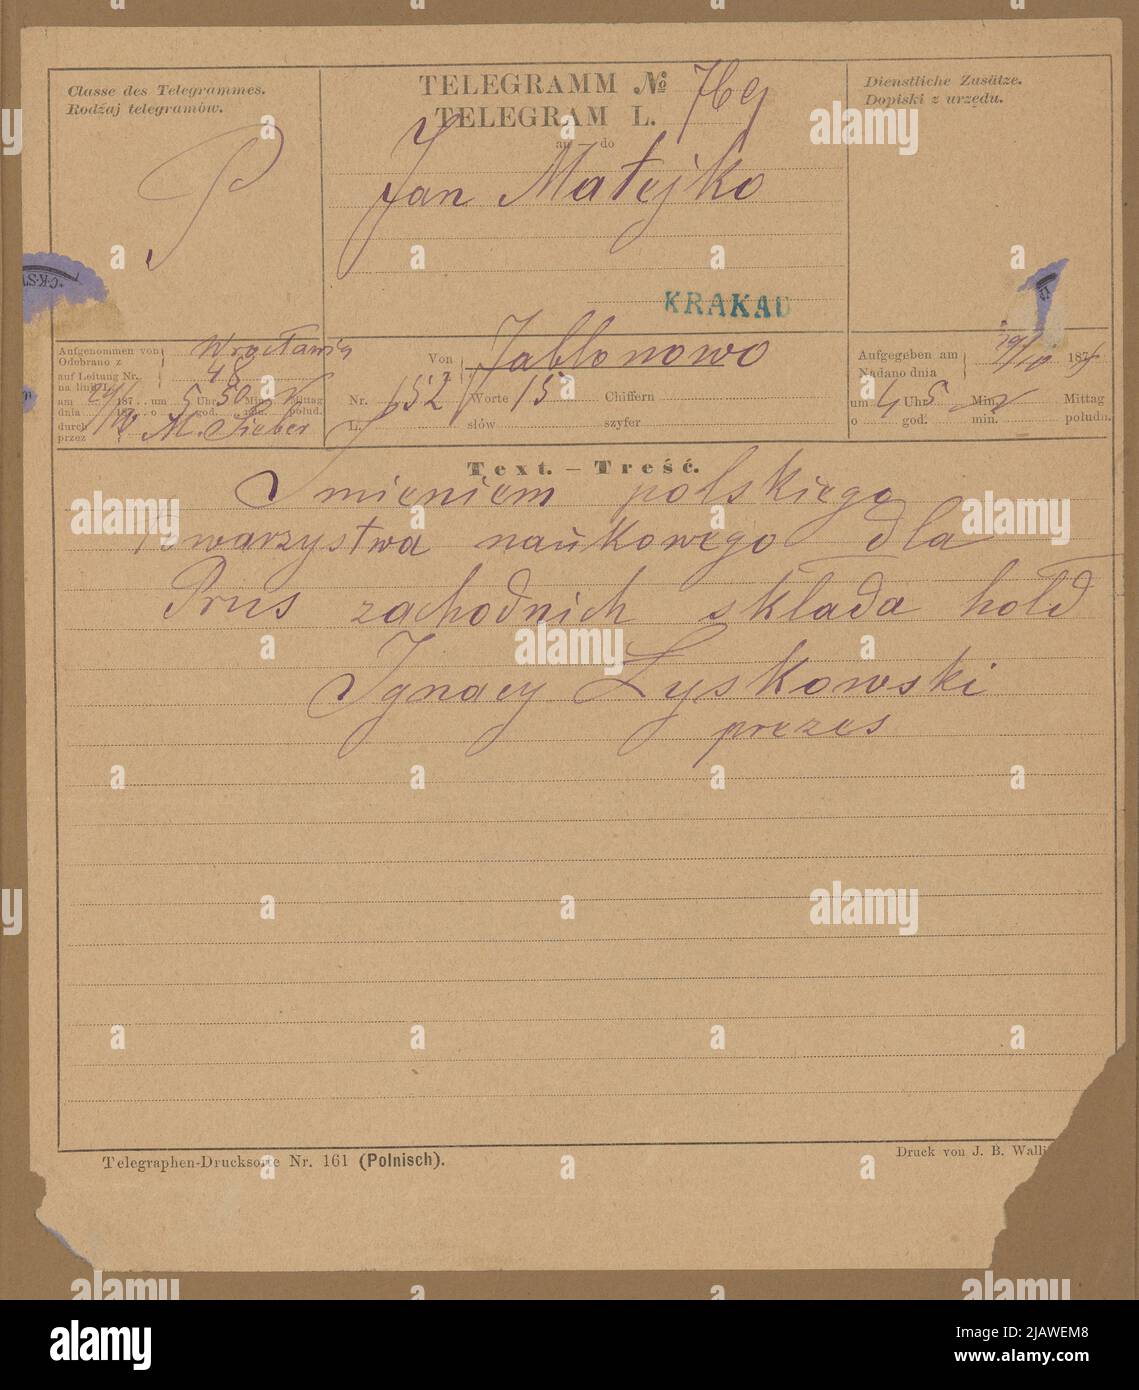 Classe des Telegrammes.
Rodźaj telegramów.
P
TELEGRAMM №
TELEGRAM L.
an — do
Jan Matejko
KRAKAU
Dienstliche Zusätze.
Dopiski z urzędu.
Aufgenommen von
Odebrano z
Wrocławia
auf Leitung Nr.
na linii L.
48
am 187 um 5 Uhr 50 Min. Mittag
dnia 187 o god. min. połud.
durch
przez
M. Sieber
Von
z
Jabłonowo
Nr. 152 Worte 15 Chiffern
L. słów szyfer
Aufgegeben am
Nadano dnia
29/10 187
um 4 Uhr 5 Min. Mittag
o god. min. połudn.
Text. — Treść.
Imieniem polskiego
Towarzystwa naukowego dla
Prus zachodnich składa hołd
Ignacy Łyskowski
prezes
Telegraphen-Drucksorte Nr. 161 (Polnisch).
Druck von J. B. Walli
alamy
Image ID: 2JAWEM8
www.alamy.com